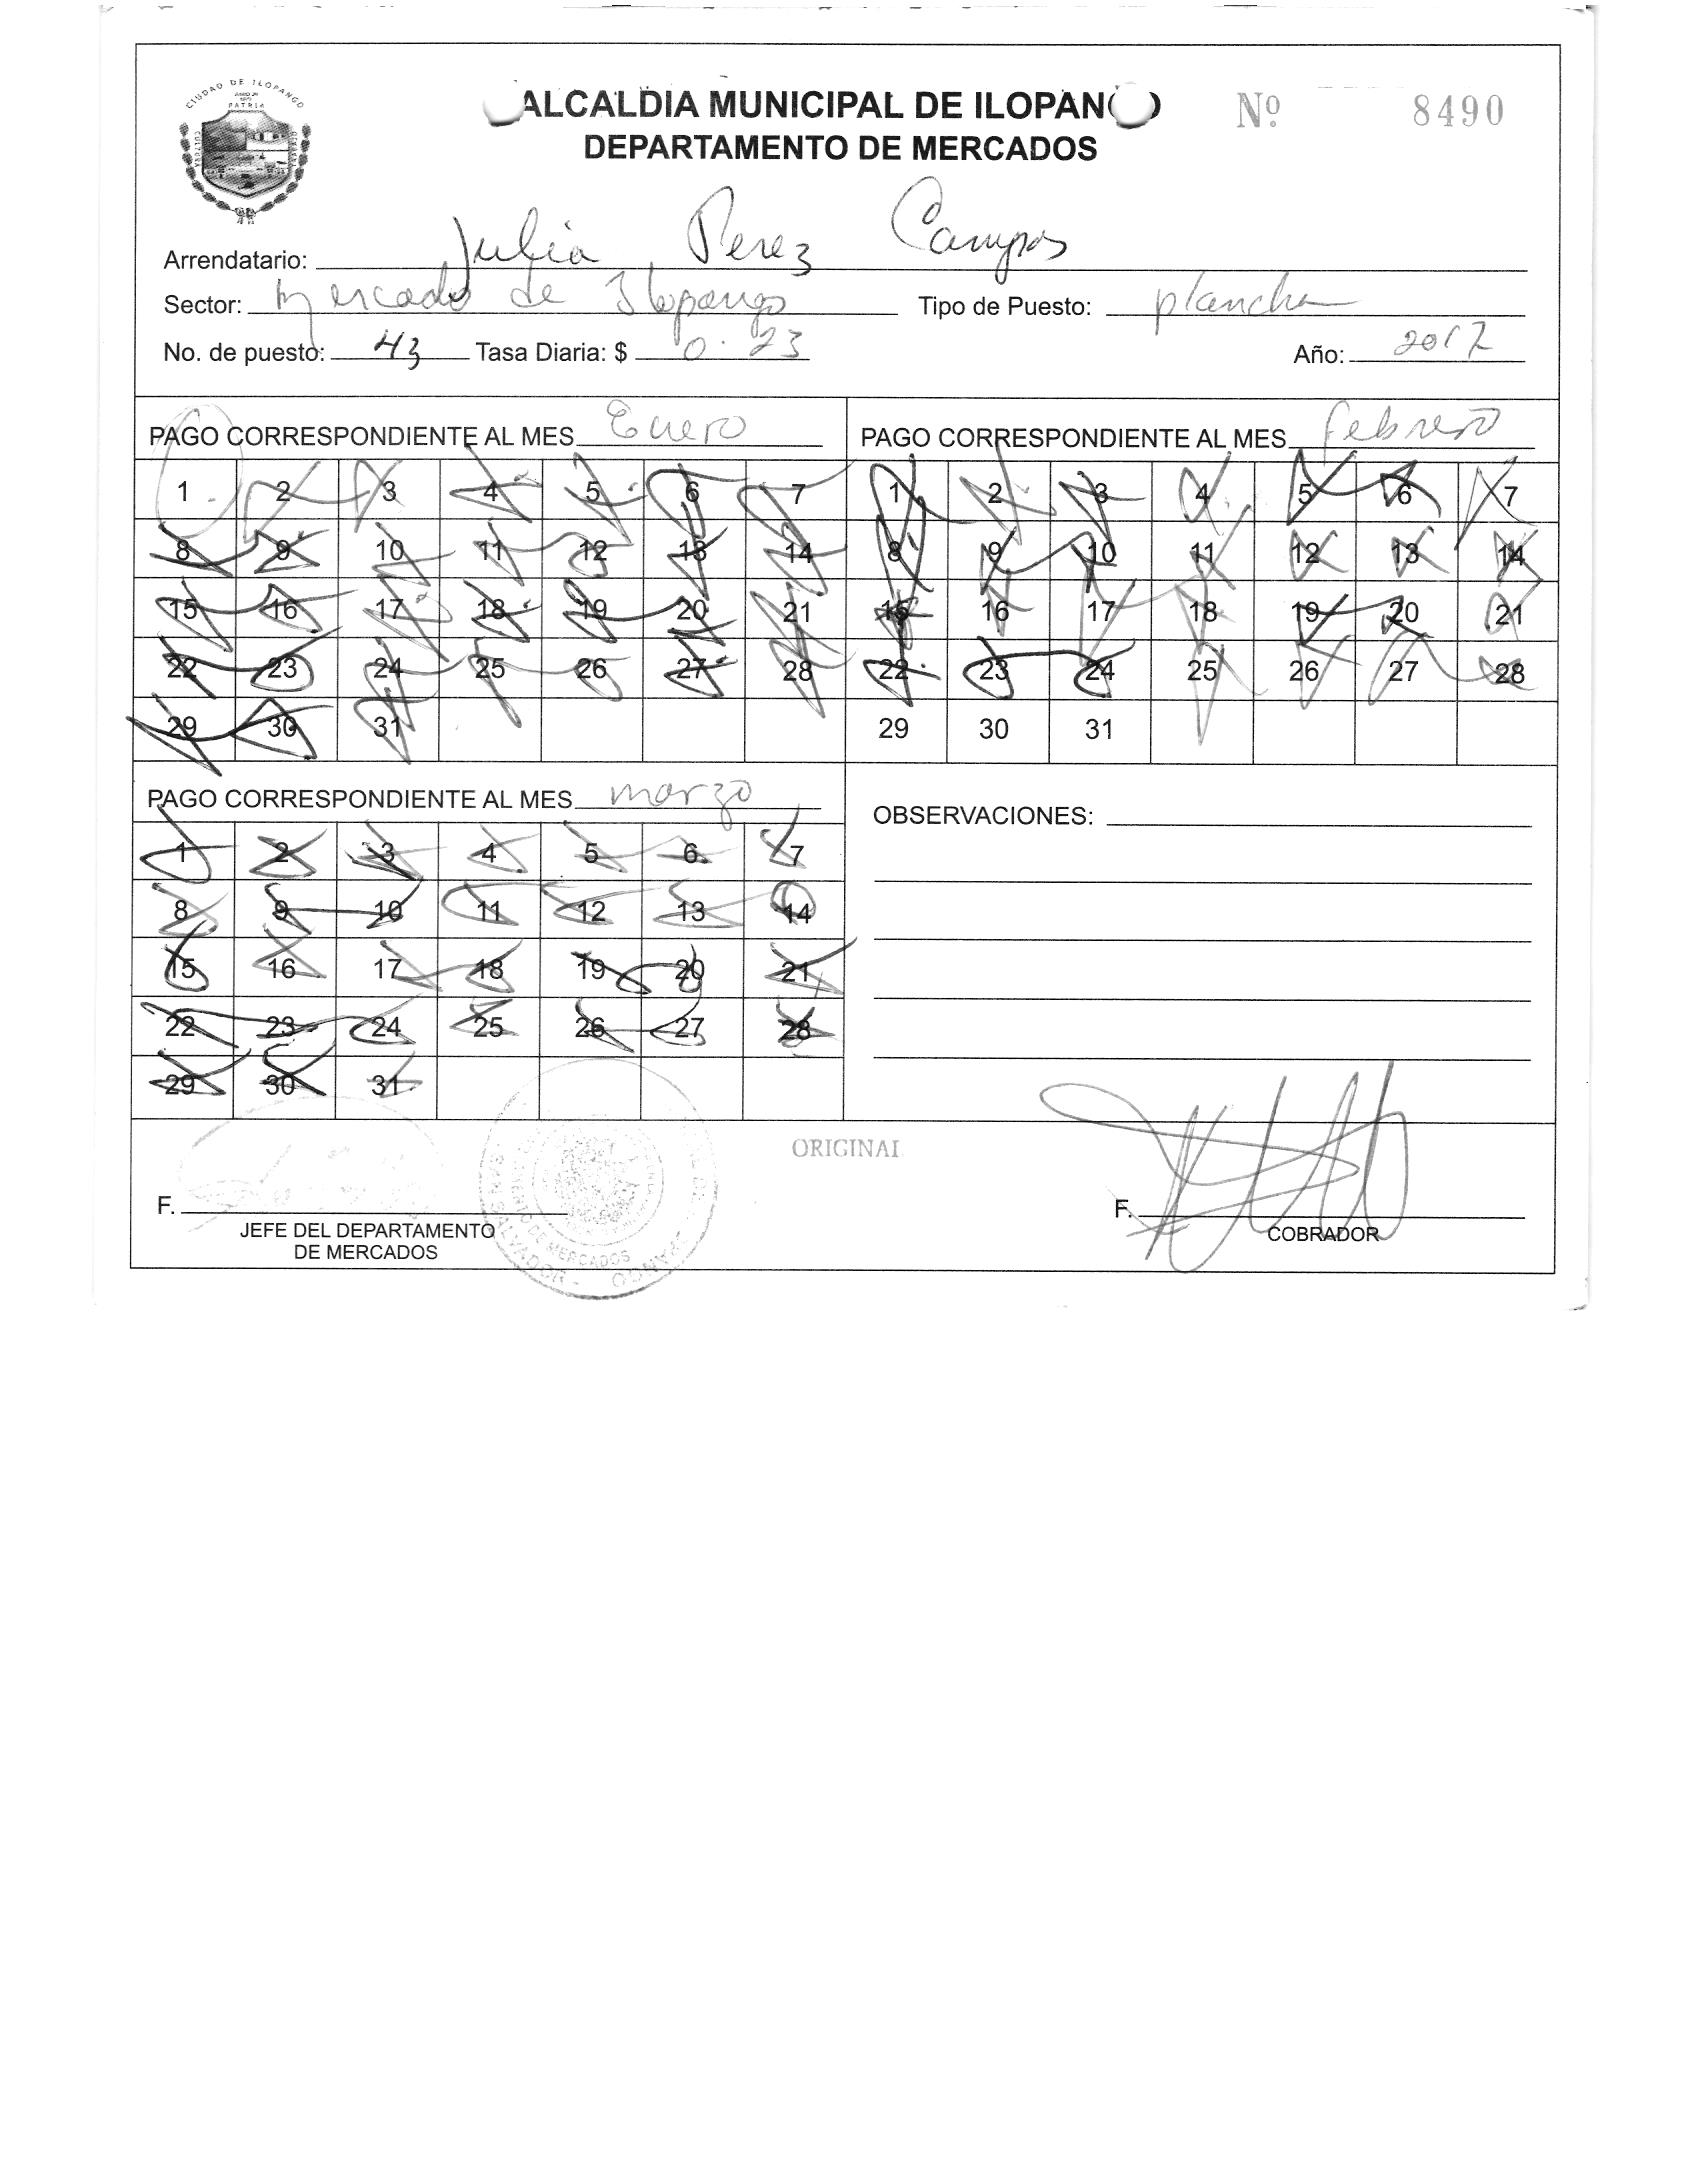 CIUDAD DE ILOPANGO
PATRIA
CULTURA
ALCALDIA MUNICIPAL DE ILOPANGO
DEPARTAMENTO DE MERCADOS
Nº 8490
Arrendatario: Julia Perez Campos
Sector: Mercado de Ilopango Tipo de Puesto: plancha
No. de puesto: 43 Tasa Diaria: $ 0.23 Año: 2017
PAGO CORRESPONDIENTE AL MES Enero
1 2 3 4 5 6 7
8 9 10 11 12 13 14
15 16 17 18 19 20 21
22 23 24 25 26 27 28
29 30 31
PAGO CORRESPONDIENTE AL MES febrero
1 2 3 4 5 6 7
8 9 10 11 12 13 14
15 16 17 18 19 20 21
22 23 24 25 26 27 28
29 30 31
PAGO CORRESPONDIENTE AL MES marzo
1 2 3 4 5 6 7
8 9 10 11 12 13 14
15 16 17 18 19 20 21
22 23 24 25 26 27 28
29 30 31
OBSERVACIONES:
ORIGINAL
F.
JEFE DEL DEPARTAMENTO
DE MERCADOS
DE MERCADOS
SAN SALVADOR -
F.
COBRADOR